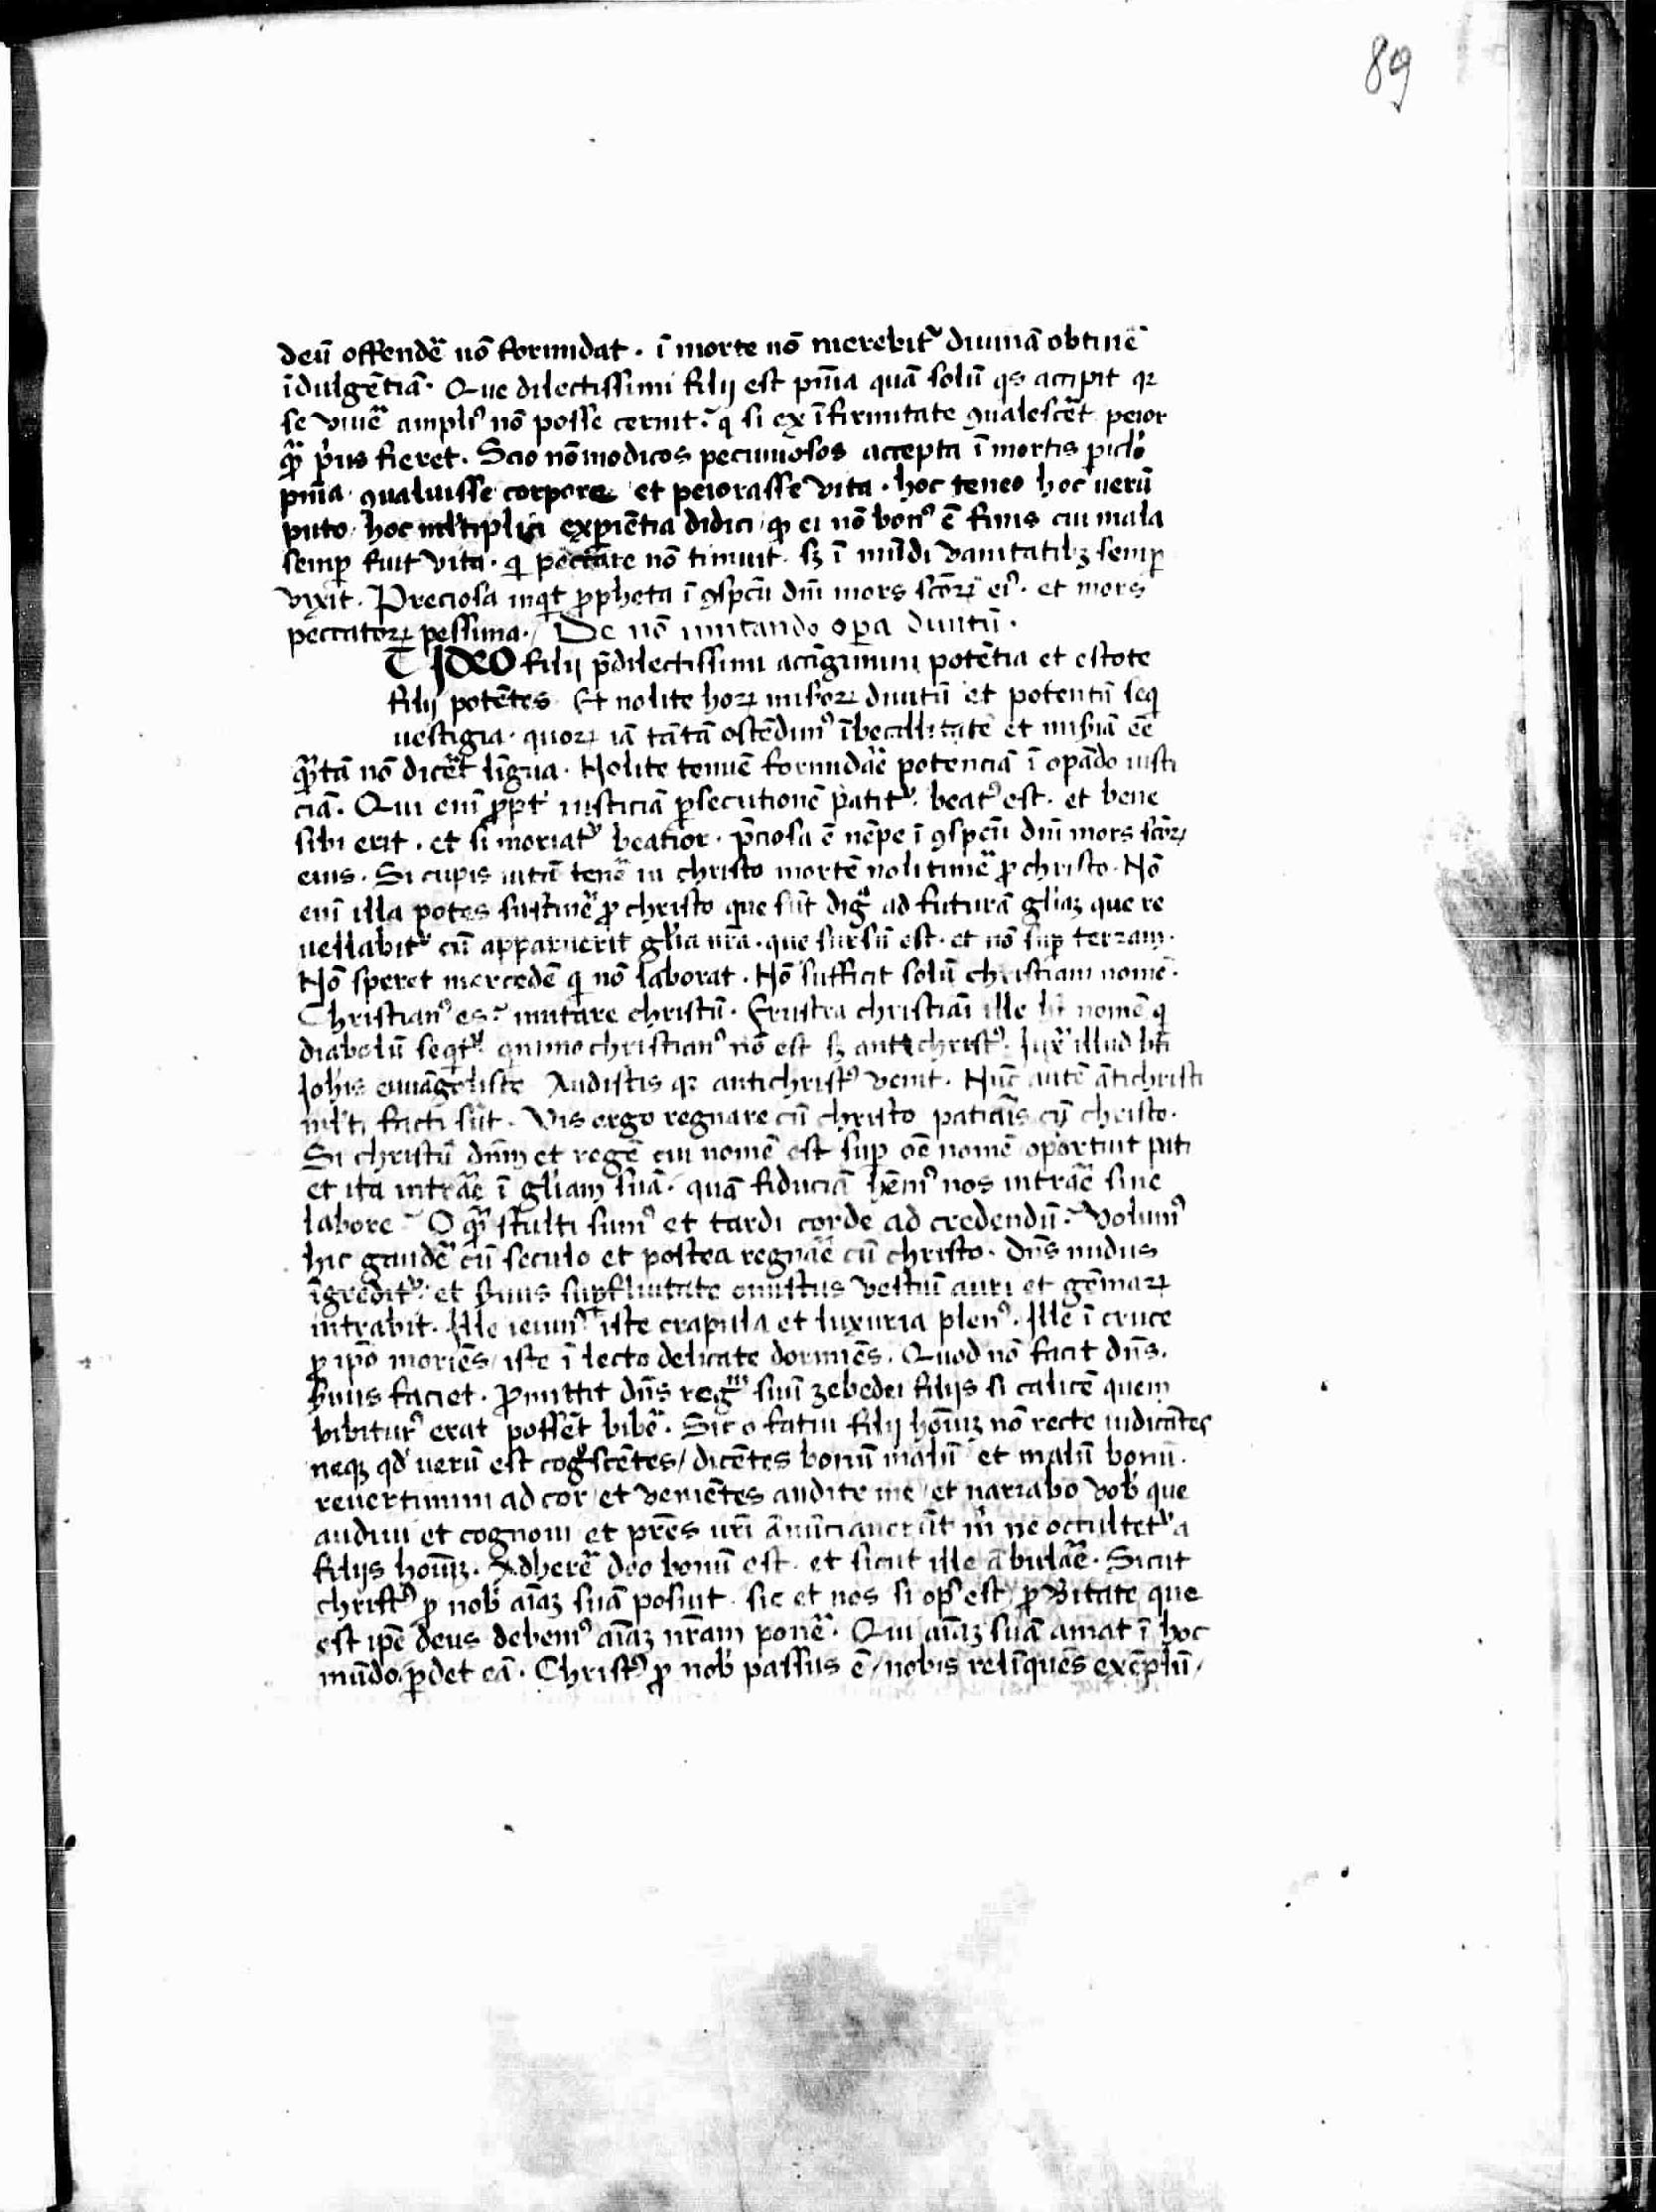 89
deū offendē nō formidat. ī morte nō merebit᷑ diuinā obtinē
īdulgētiā. Que dilectissimi filij est pn̄ia quā solū qs accipit qꝛ
se viuē ampliꝰ nō posse cernit. q si ex īfirmitate ꝯualescēt peior
qᷓ pꝰus fieret. Scio nō modicos pecuniosos accepta ī mortis piclo
pn̄ia ꝯualuisse corpore et peiorasse vita. hoc teneo hoc uerū
puto hoc ml̓tiplici expiētia didici ꝙ ei nō bonꝰ ē finis cui mala
semꝑ fuit vita. qi peccare nō timuit. sꝫ ī mūdi vanitatibꝫ semꝑ
vixit. Preciosa inqt ꝓpheta ī ꝯspcū dn̄i mors scōꝝ eiꝰ. et mors
peccatoꝝ pessima. / De nō imitando oꝑa diuitū.
IDEO filij p̄dilectissimi accīgimini potētia et estote
filij potētes Et nolite hoꝝ miſoꝝ diuitū et potentū seq
uestigia. quoꝝ iā tātā ostēdimꝰ ībecillitatē et misiā eē
qᷓtā nō dicēt līgua. Nolite temuē formidāē potenciā ī oꝑādo iusti
ciā. Qui eni ꝓpt̓ iusticiā ꝑsecutionē patit᷑. beatꝰ est. et bene
sibi erit. et si moriat᷑ beatior. p̄ciosa ē nēpe ī ꝯspcū dn̄i mors scōꝝ
eius. Si cupis uitā tenē in christo mortē noli timē ꝓ christo. Nō
eni illa potes sustinē ꝓ christo que sūt digᷓ ad futurā gl̓iaꝫ que re
uellabit᷑ cū apparuerit gl̓ia nr̄a. que sursū est. et nō suꝑ terram.
Nō speret mercedē qi nō laborat. Nō sufficit solū christiani nomē.
Christianꝰ es. imitare christū. Frustra christiāi ille ht nomē qi
diabolū seqt᷑. quimo christianꝰ nō est sꝫ antichristꝰ. Juxᷓ illud bt̄i
Joh̓is euuāgeliste Audistis qꝛ antichristꝰ venit. Nūc autē ātichristi
ml̓ti facti sūt. Vis ergo regnare cū christo patiāis cū christo.
Si christū dn̄m et regē cui nomē est suꝑ oē nomē oportuit pati
et ita intrāē ī gl̓iam suā. quā fiduciā hēmꝰ nos intrāē sine
labore. O qᷓ stulti sumꝰ et tardi corde ad credendū. Volumꝰ
hic gaudē cū seculo et postea regnāē cū christo. Dn̄s nudus
īgredit᷑. et ẜuus suꝑfluitate onustus vestiū auri et gēmaꝝ
intrabit. Ille ieiunꝰ iste crapula et luxuria plenꝰ. Ille ī cruce
ꝓ ipō moriēs / iste ī lecto delicate dormiēs. Quod nō facit dn̄s.
ẜuus faciet. Promittit dn̄s regᵐ suū zebedei filijs si calicē quem
bibiturꝰ erat possēt bibē. Sic o fatui filij hoīuꝫ nō recte iudicātes
neqꝫ qd̓ uerū est cogᵒscētes / dicētes bonū malū et malū bonū.
reuertimini ad cor et veniētes audite me et narrabo vob̓ que
audiui et cognoui et pr̄es ur̄i ānūciauerūt m̓ ne occultet᷑ a
filijs hoīuꝫ. Adherē deo bonū est. et sicut ille ābulāē. Sicut
christꝰ ꝓ nob̓ aīaꝫ suā posuit. sic et nos si opꝰ est ꝓ ꝟitate que
est ipē deus debemꝰ aīaꝫ nr̄am ponē. Qui aīaꝫ suā amat ī hoc
mūdo ꝑdet eā. Christꝰ ꝓ nob̓ passus ē / nobis relīquēs exēplū /